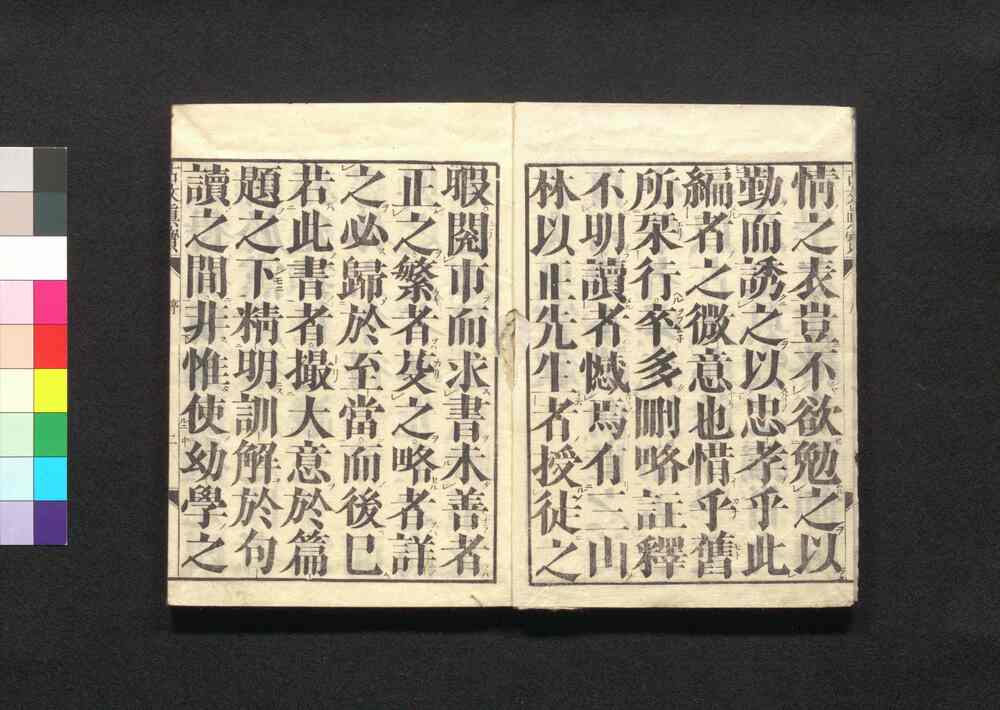 情之表豈不欲勉之以
勤而誘之以忠孝乎此
編者之微意也惜乎舊
所栞行卒多刪略註釋
不明讀者憾焉有三山
林以正先生者授徒之
暇閱市而求書未善者
正之繁者芟之略者詳
之必歸於至當而後已
若此書者撮大意於篇
題之下精明訓解於句
讀之間非惟使幼學之